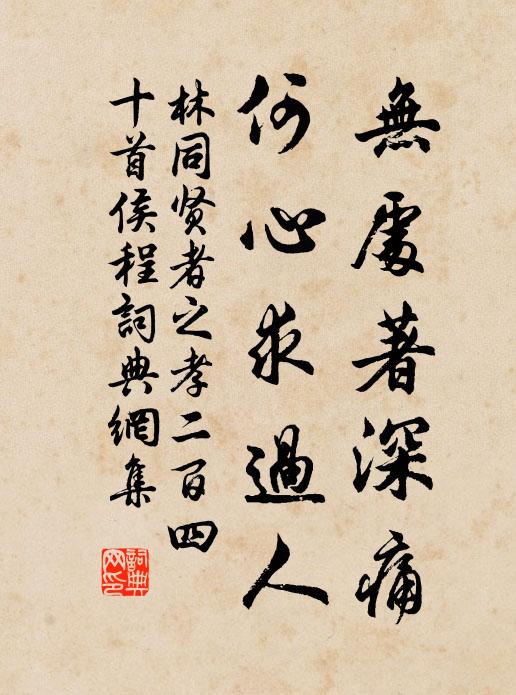 無處著深痛
何心求過人
林同賢者之孝二百四
十首侯程詞典網集
詞典
网印